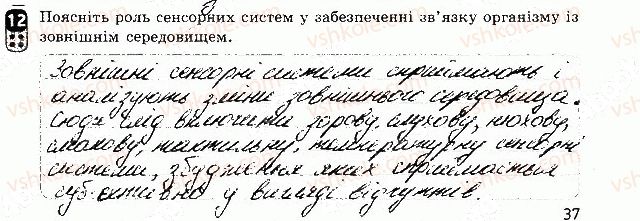 12 Поясніть роль сенсорних систем у забезпеченні зв'язку організму із
зовнішнім середовищем.
Зовнішні сенсорні системи сприймають і
аналізують зміни зовнішнього середовища.
Сюди слід включити зорову, слухову, нюхову,
смакову, тактильну, температурну сенсорні
системи, збудження яких сприймається
суб'єктивно у вигляді відчуттів.
37